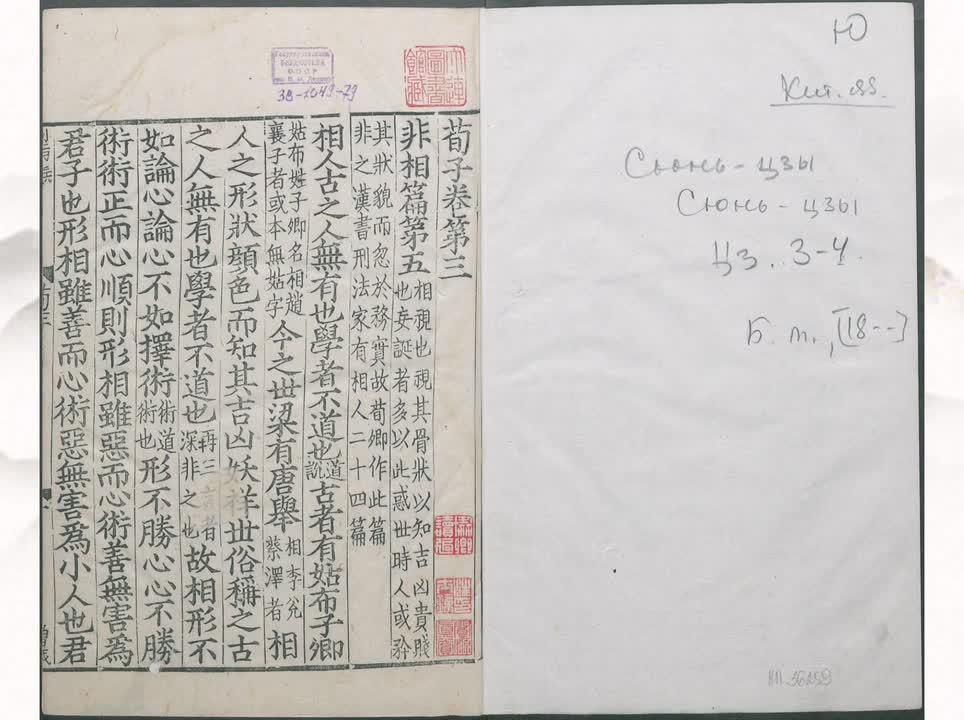 荀子卷第三
非相篇第五相視也視其骨狀以知吉凶貴賤也妄誕者多以此惑世時人或矜
其狀貌而忽於務實故荀卿作此篇非之漢書刑法家有相人二十四篇
相人古之人無有也學者不道也道說古者有姑布子卿
姑布姓子卿名相趙襄子者或本無姑字今之世梁有唐舉相李兌蔡澤者相
人之形狀顔色而知其吉凶妖祥世俗稱之古
之人無有也學者不道也再三言者深非之也故相形不
如論心論心不如擇術術道術也形不勝心心不勝
術術正而心順則形相雖惡而心術善無害爲
君子也形相雖善而心術惡無害爲小人也君
大連圖書館藏
38-1049-79
Ю
Кит. яз.
Сюнь-цзы
Сюнь-цзы
Цз. 3-4.
Б. м., [18--]